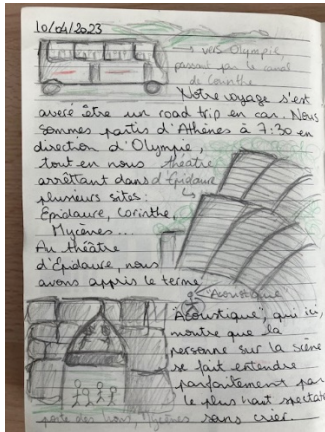 10/04/2023
→ vers Olympie
passant par le canal
de Corinthe
Notre voyage s'est
averé être un road trip en car. Nous
sommes partis d'Athènes à 7:30 en
direction d'Olympie,
tout en nous
théâtre
arrêtant dans
d'Epidaure
plusieurs sites:
Epidaure, Corinthe,
Mycènes...
Au théâtre
d'Epidaure, nous
avons appris le terme
"Acoustique"
"Acoustique", qui ici,
montre que la
personne sur la scène
se fait entendre
parfaitement par
le plus haut spectat
sans crier.
porte des lions, Mycènes